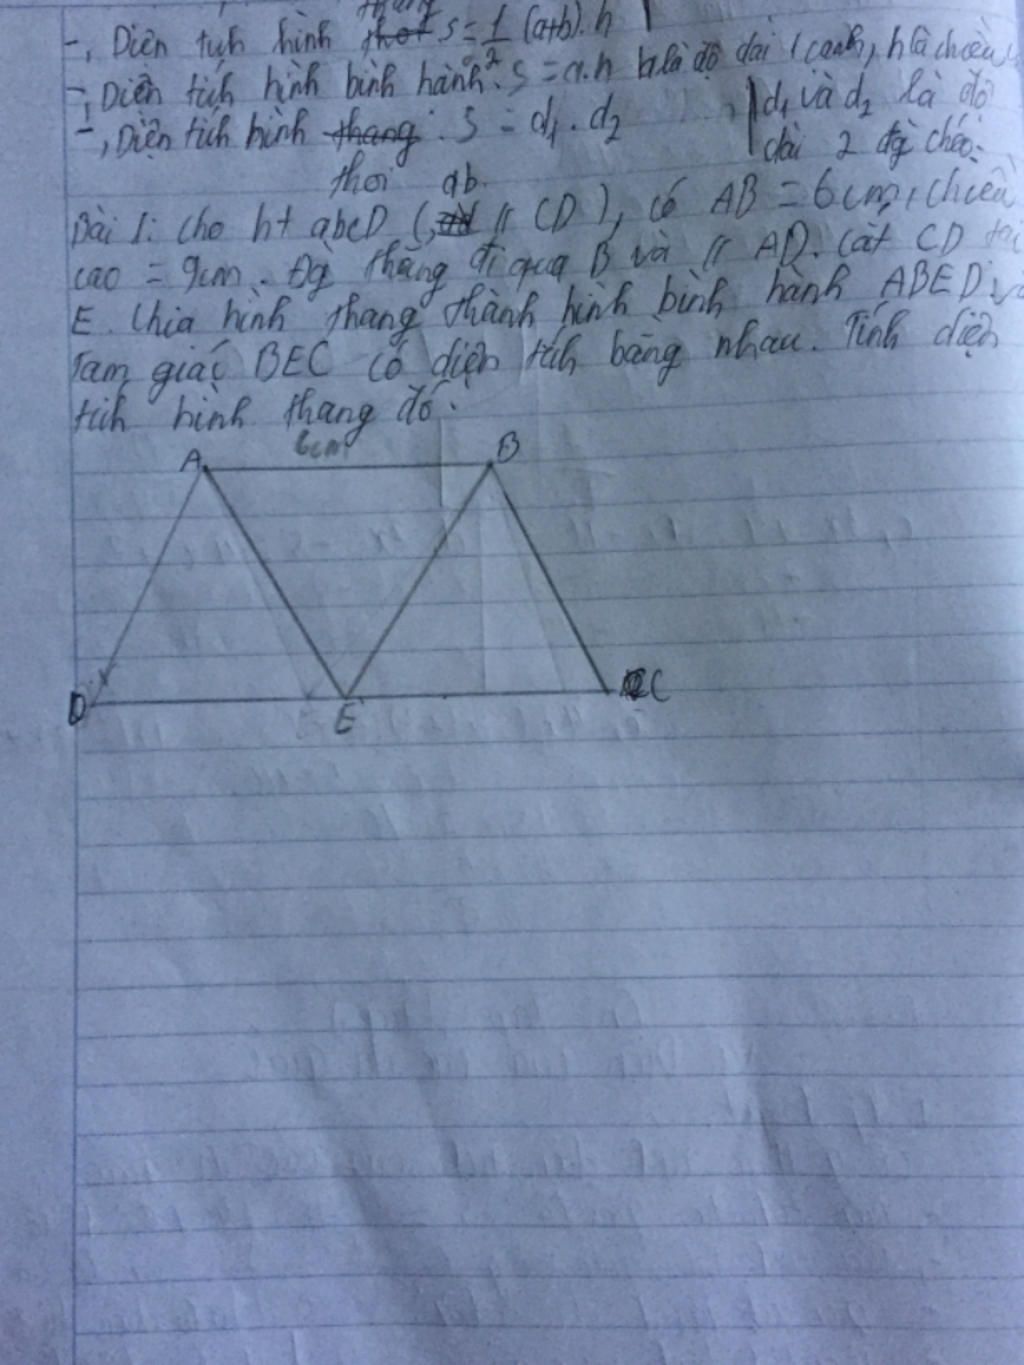 -, Diện tích hình thot S = 1/2 (a+b).h
thang
-, Diện tích hình bình hành: S = a.h a là độ dài 1 cạnh, h là chiều
-, Diện tích hình thang : S = d1 . d2 d1 và d2 là độ
thoi dài 2 đg chéo.
ab
Bài 1: Cho ht abcD ( // CD ), có AB = 6cm, chiều
cao = 9cm. Đg thẳng đi qua B và // AD. Cắt CD tại
E. Chia hình thang thành hình bình hành ABED và
Tam giác BEC có diện tích bằng nhau. Tính diện
tích hình thang đó.
6cm
A B
D E C